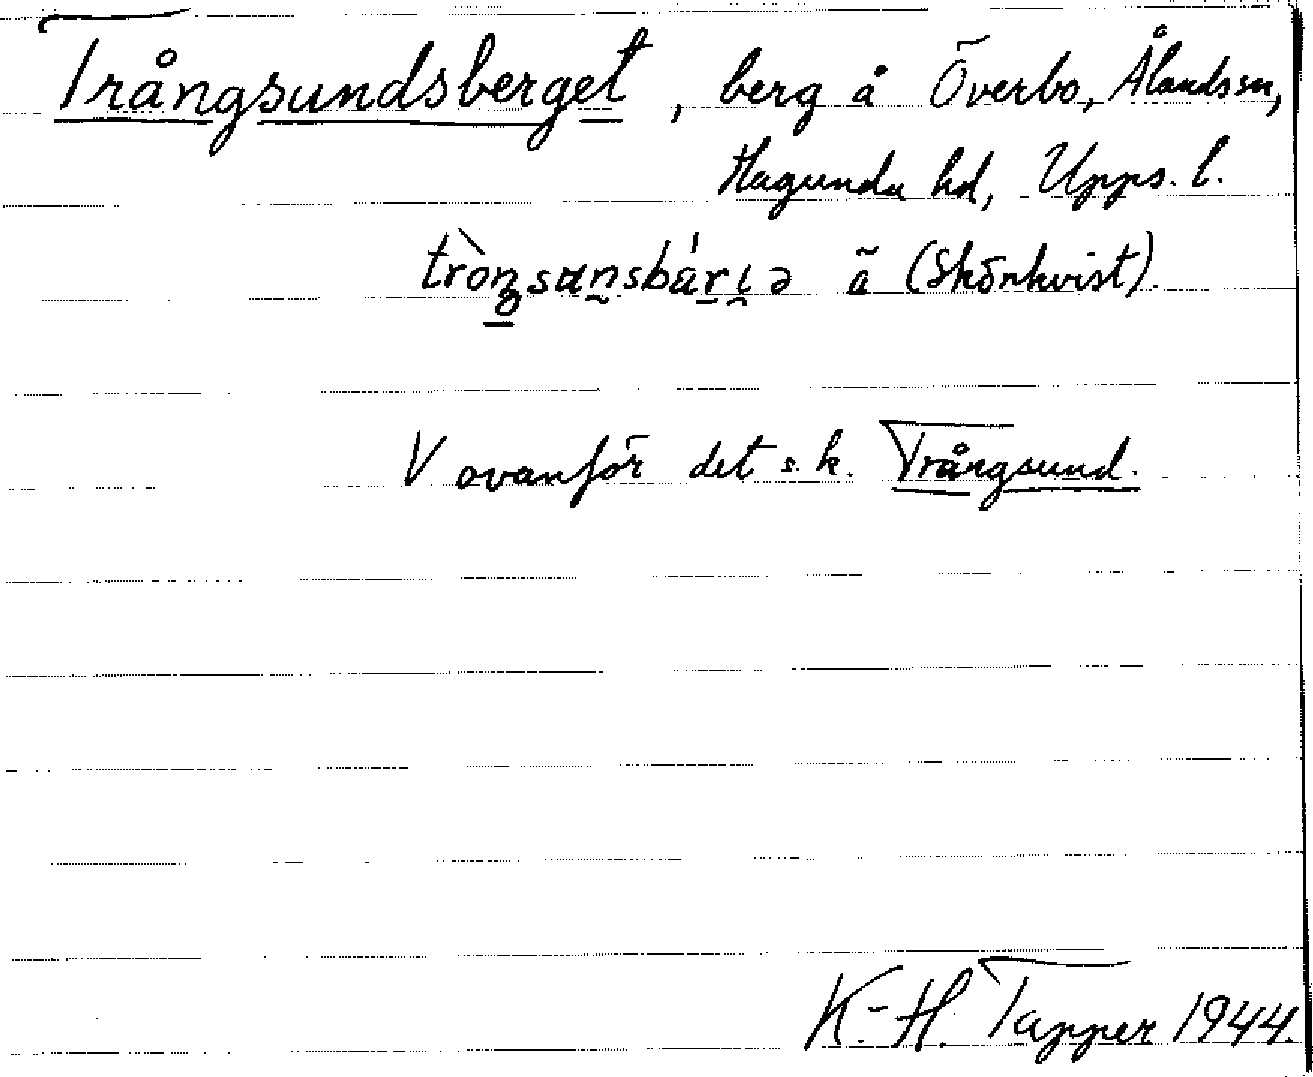 Trångsundsberget, berg å Överbo, Ålands sn,
Hagunda hd, Upps. l.
å (Skönkvist).
V ovanför det s.k. Trångsund.
K.-H. Tapper 1944.